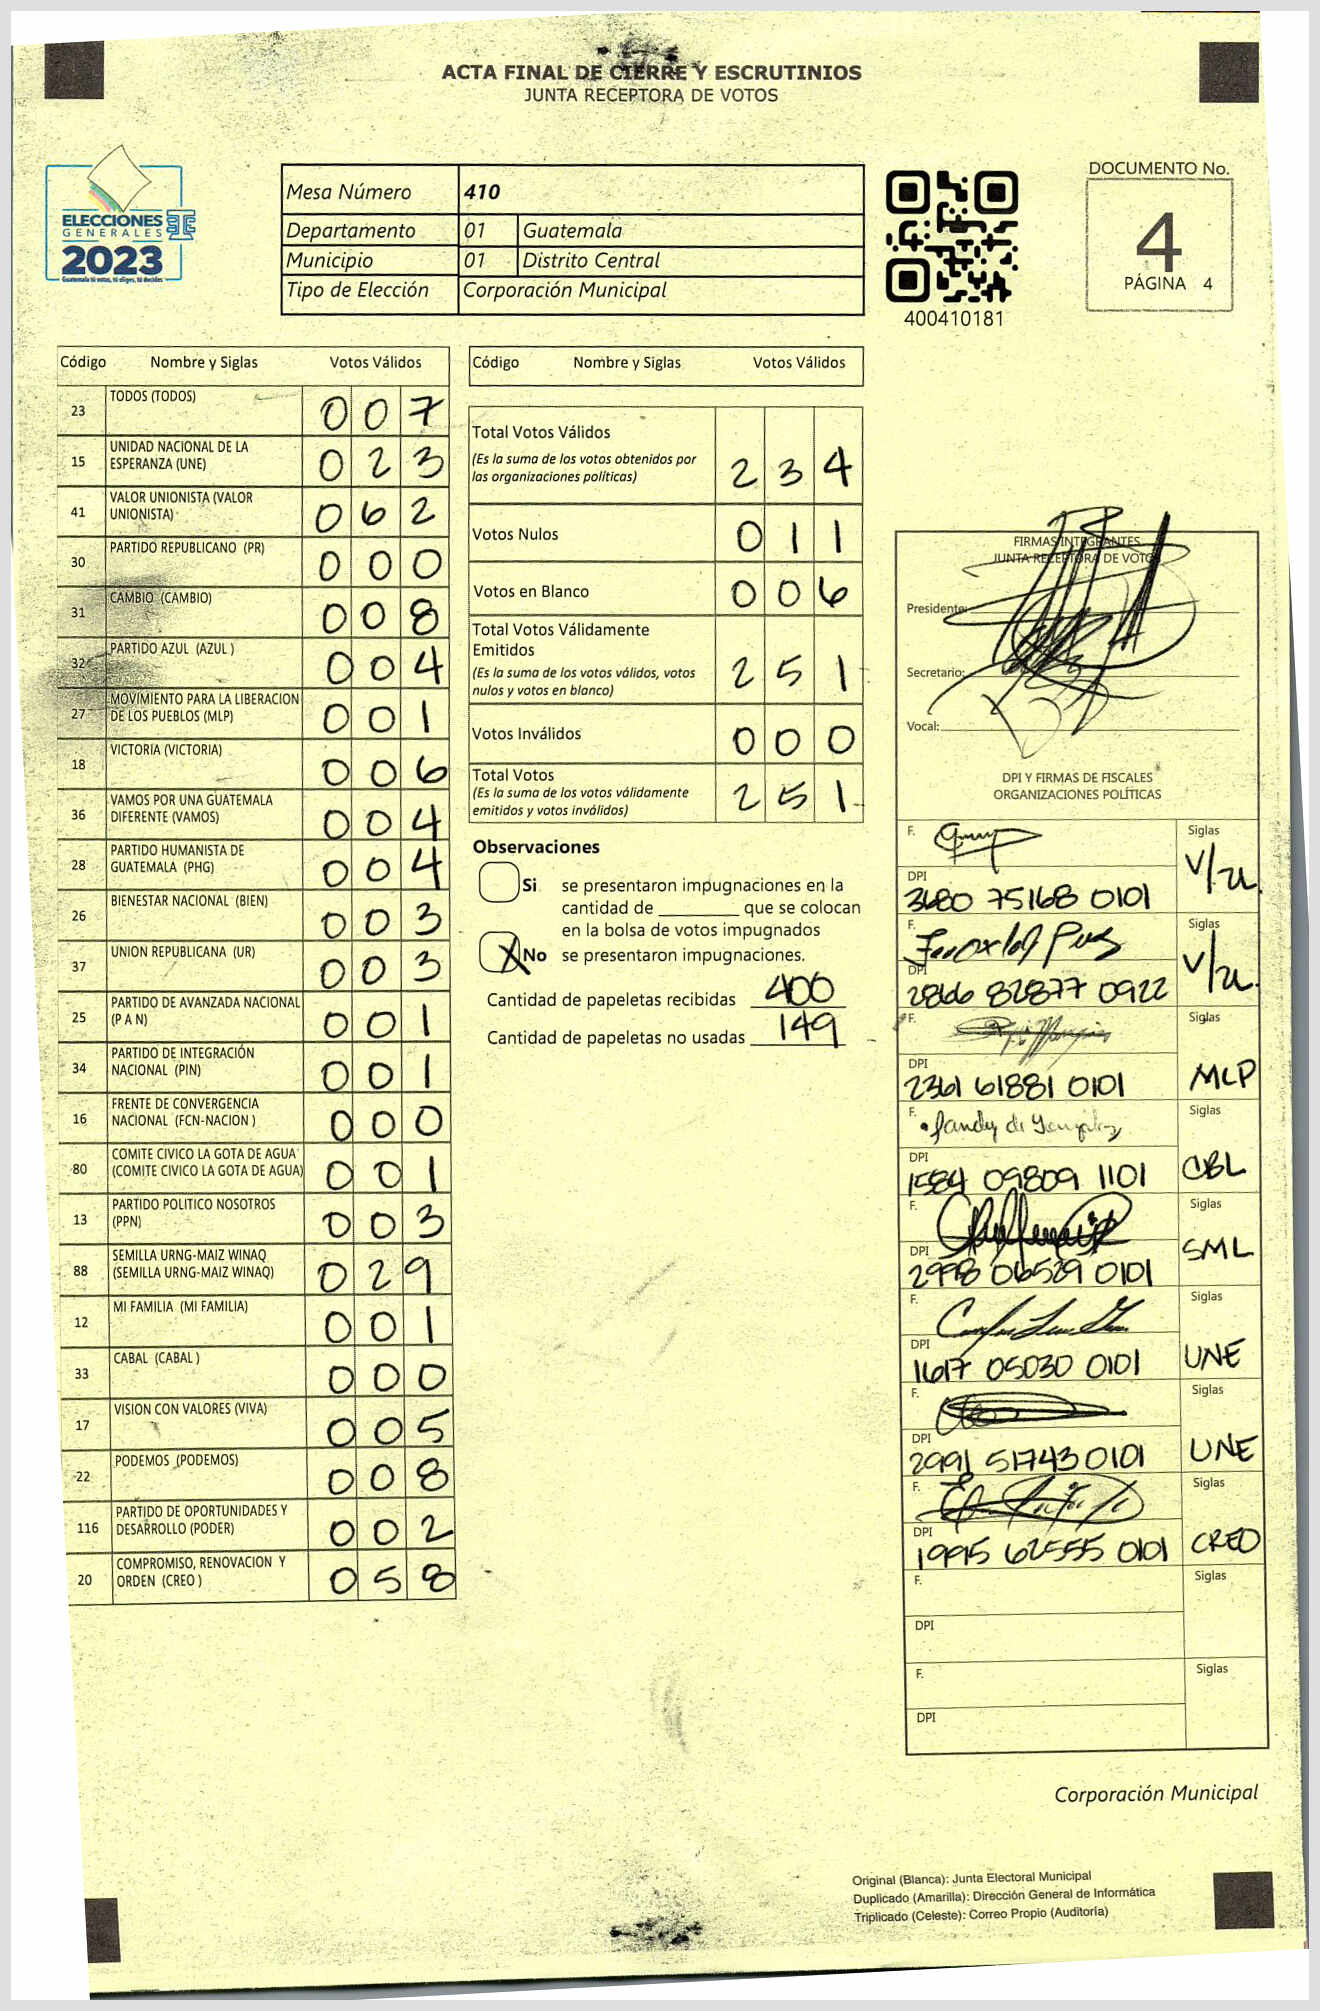 ACTA FINAL DE CIERRE Y ESCRUTINIOS
JUNTA RECEPTORA DE VOTOS
ELECCIONES
GENERALES
2023
Guatemala tú votas, tú eliges, tú decides
Mesa Número 410
Departamento 01 Guatemala
Municipio 01 Distrito Central
Tipo de Elección Corporación Municipal
400410181
DOCUMENTO No.
4
PÁGINA 4
Código Nombre y Siglas Votos Válidos
23 TODOS (TODOS) 0 0 7
15 UNIDAD NACIONAL DE LA
ESPERANZA (UNE) 0 2 3
41 VALOR UNIONISTA (VALOR
UNIONISTA) 0 6 2
30 PARTIDO REPUBLICANO (PR) 0 0 0
31 CAMBIO (CAMBIO) 0 0 8
32 PARTIDO AZUL (AZUL ) 0 0 4
27 MOVIMIENTO PARA LA LIBERACION
DE LOS PUEBLOS (MLP) 0 0 1
18 VICTORIA (VICTORIA) 0 0 6
36 VAMOS POR UNA GUATEMALA
DIFERENTE (VAMOS) 0 0 4
28 PARTIDO HUMANISTA DE
GUATEMALA (PHG) 0 0 4
26 BIENESTAR NACIONAL (BIEN) 0 0 3
37 UNION REPUBLICANA (UR) 0 0 3
25 PARTIDO DE AVANZADA NACIONAL
(P A N) 0 0 1
34 PARTIDO DE INTEGRACIÓN
NACIONAL (PIN) 0 0 1
16 FRENTE DE CONVERGENCIA
NACIONAL (FCN-NACION ) 0 0 0
80 COMITE CIVICO LA GOTA DE AGUA
(COMITE CIVICO LA GOTA DE AGUA) 0 0 1
13 PARTIDO POLITICO NOSOTROS
(PPN) 0 0 3
88 SEMILLA URNG-MAIZ WINAQ
(SEMILLA URNG-MAIZ WINAQ) 0 2 9
12 MI FAMILIA (MI FAMILIA) 0 0 1
33 CABAL (CABAL ) 0 0 0
17 VISION CON VALORES (VIVA) 0 0 5
22 PODEMOS (PODEMOS) 0 0 8
116 PARTIDO DE OPORTUNIDADES Y
DESARROLLO (PODER) 0 0 2
20 COMPROMISO, RENOVACION Y
ORDEN (CREO ) 0 5 8
Código Nombre y Siglas Votos Válidos
Total Votos Válidos
(Es la suma de los votos obtenidos por
las organizaciones políticas) 2 3 4
Votos Nulos 0 1 1
Votos en Blanco 0 0 6
Total Votos Válidamente
Emitidos
(Es la suma de los votos válidos, votos
nulos y votos en blanco) 2 5 1
Votos Inválidos 0 0 0
Total Votos
(Es la suma de los votos válidamente
emitidos y votos inválidos) 2 5 1
Observaciones
Si se presentaron impugnaciones en la
cantidad de ________ que se colocan
en la bolsa de votos impugnados
X No se presentaron impugnaciones.
Cantidad de papeletas recibidas 400
Cantidad de papeletas no usadas 149
FIRMAS INTEGRANTES
JUNTA RECEPTORA DE VOTOS
Presidente:
Secretario:
Vocal:
DPI Y FIRMAS DE FISCALES
ORGANIZACIONES POLÍTICAS
F. Siglas
DPI V/U.
3680 75168 0101
F. Siglas
DPI V/U.
2866 82877 0922
F. Siglas
DPI MLP
2361 61881 0101
F. Sandy de Siglas
DPI CBL
1584 09809 1101
F. Siglas
DPI SML
2998 06529 0101
F. Siglas
DPI UNE
1617 05030 0101
F. Siglas
DPI UNE
2991 51743 0101
F. Siglas
DPI CREO
1995 62555 0101
F. Siglas
DPI
F. Siglas
DPI
Corporación Municipal
Original (Blanca): Junta Electoral Municipal
Duplicado (Amarilla): Dirección General de Informática
Triplicado (Celeste): Correo Propio (Auditoría)